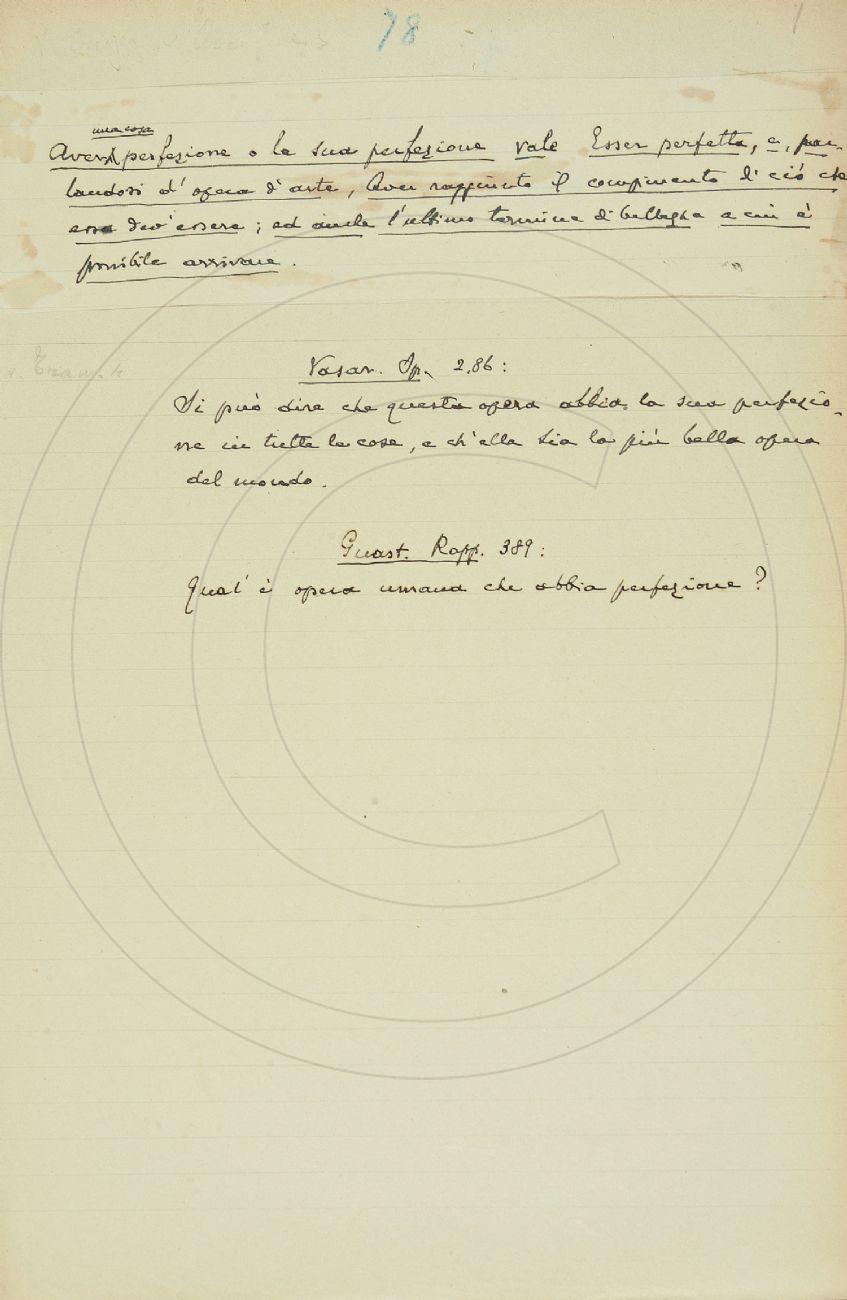 78
1
una cosa
Aver perfezione o la sua perfezione vale Esser perfetta, e, par-
landosi d'opera d'arte, Aver raggiunto il compimento di ciò che
essa dev'essere; ed anche l'ultimo termine di bellezza a cui è
possibile arrivare.
Vasar. Op. 2,86:
Si può dire che questa opera abbia la sua perfezio-
ne in tutte le cose, e ch'ella sia la più bella opera
del mondo.
Guast. Rapp. 389:
Qual'è opera umana che abbia perfezione?